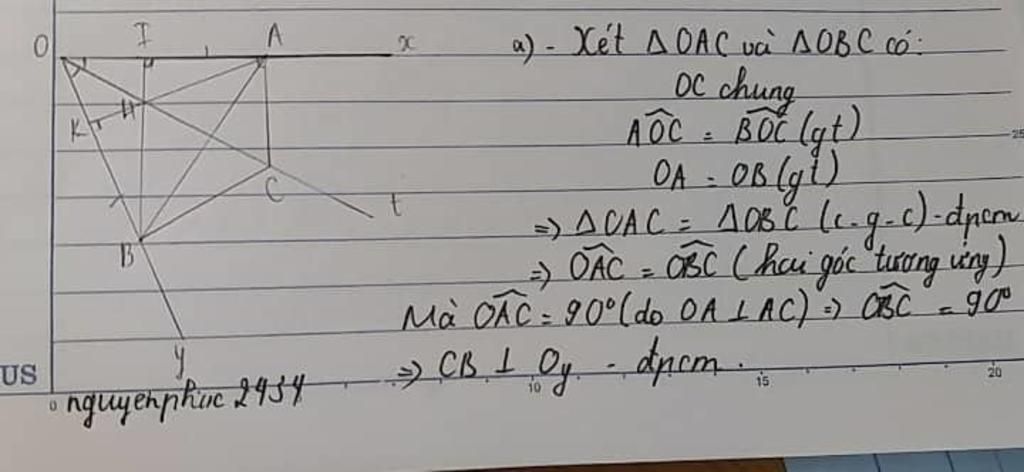 O I A x
K H
C t
B
y
a) - Xét ΔOAC và ΔOBC có:
OC chung
\widehat{AOC} = \widehat{BOC} (gt)
OA = OB (gt)
=> ΔOAC = ΔOBC (c-g-c) - đpcm
=> \widehat{OAC} = \widehat{OBC} (hai góc tương ứng)
Mà \widehat{OAC} = 90° (do OA ⊥ AC) => \widehat{OBC} = 90°
=> CB ⊥ Oy - đpcm.
nguyenphuc 2454
US
0 10 15 20
25